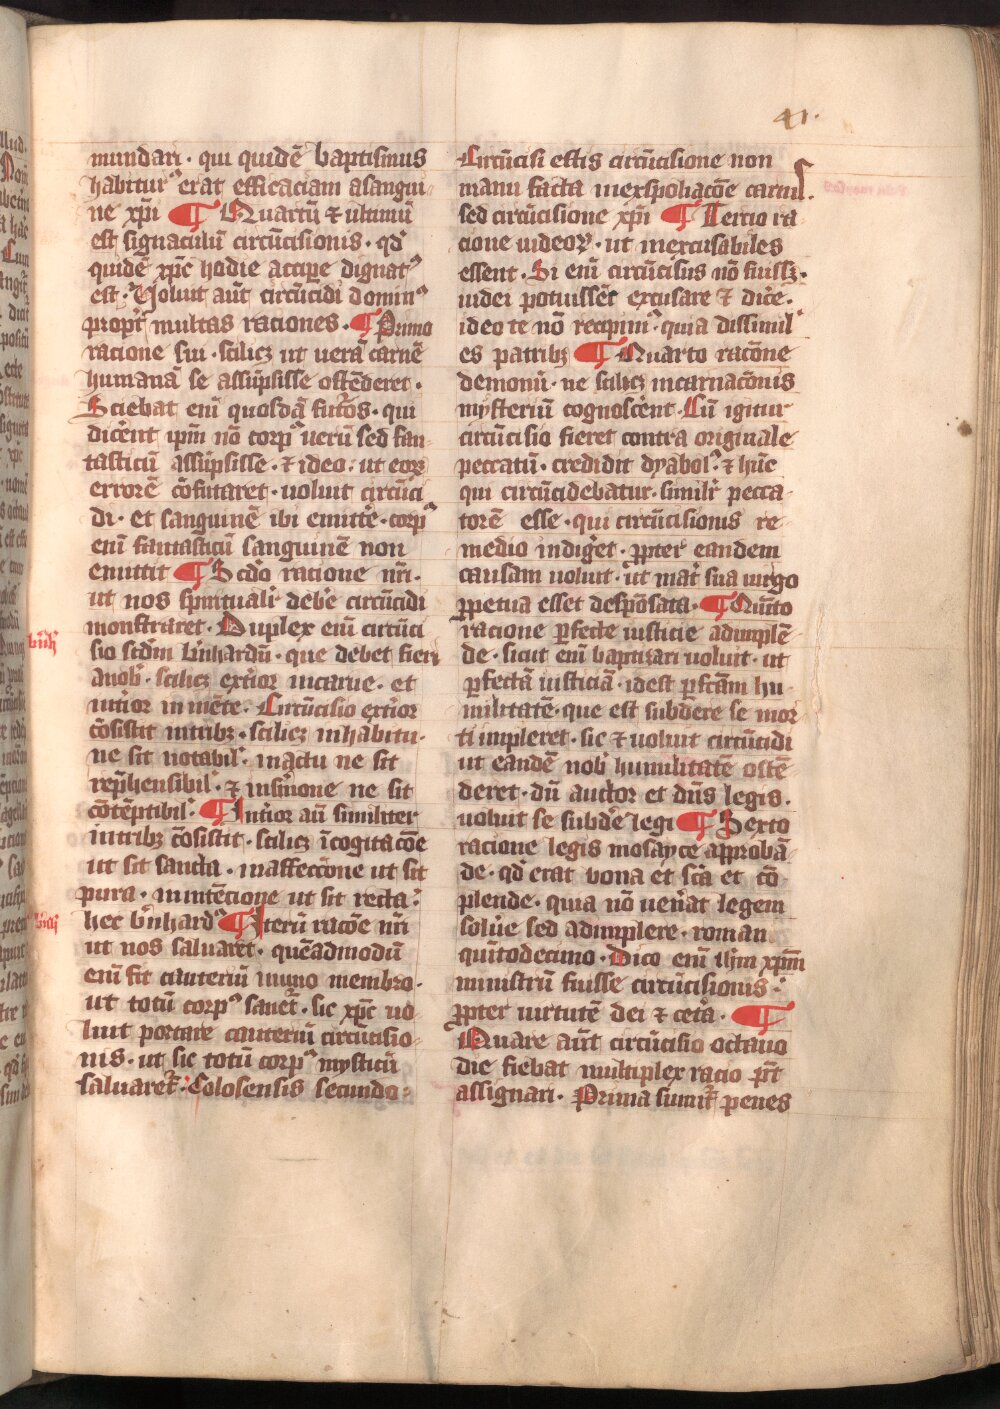 41.
mundari · qui quidē baptismus
habitur᷒ erat efficaciam a sangui
ne xp̄i ¶ Quartū ⁊ ultimū
est signaculū circūcisionis · qd̓
quidē xp̄c hodie accip̄e dignat᷒
est · Voluit aūt circūcidi domin᷒
propt̓ multas raciones · ¶ Primo
racione sui · scilicꝫ ut uerā carnē
humanā se assūpsisse ostēderet ·
Sciebat eni̅ quosdā fut̓os · qui
dicēnt ip̄m nō corp᷒ uerū sed fan
tasticū assūpsisse · ⁊ ideo · ut eoꝝ
errorē cōfutaret · uoluit circūci
di · et sanguinē ibi emitte̓ · corp᷒
eni̅ fantasticū sanguinē non
emittit ¶ Scd̓o racione nr̄i ·
ut nos spiritualit̓ debe̓ circūcidi
monstraret · Duplex eni̅ circūci
sio scd̓m b̓nhardū · que debet fieri
a nob̓ · scilicꝫ ext̓ior in carne · et
int̓ior in mēte · Circūcisio ext̓ior
cōsistit in tribꝫ · scilicꝫ in habitu ·
ne sit notabil̓ · in actu ne sit
rep̄hensibil̓ · ⁊ in s̓mone ne sit
cōtēptibil̓ · ¶ Int̓ior aūt similiter
in tribꝫ cōsistit · scilicꝫ ī cogitacōe
ut sit sancta · in affeccōne ut sit
pura · in intēcione ut sit recta ·
hec b̓nhard᷒ ¶ Iterū racōe nr̄i
ut nos saluaret · quēadmodū
eni̅ fit cauteriū in uno membro ·
ut totū corp᷒ sanet᷒ · sic xp̄c uo
luit portare cauteriū circūcisio
nis · ut sic totū corp᷒ mysticū
saluaret᷒ · Colosensis secundo ·
b̓nh̓
Circūcisi estis circūcisione non
manu facta in exspoliacōe carnis ·
sed circūcisione xp̄i ¶ Tercio ra
cione iudeoꝝ · ut inexcusabiles
essent · Si eni̅ circūcisus nō fuissꝫ ·
iudei potuissēt excusare ⁊ dice̓ ·
ideo te nō recipim᷒ · quia dissimil
es patribꝫ ¶ Quarto racōne
demonū · ne scilicꝫ incarnacōnis
mysteriū cognosce̓nt · Cū igitur
circūcisio fieret contra originale
peccatū · credidit dyabol᷒ · ⁊ hūc
qui circūcidebatur · simil̓r pecca
torē esse · qui circūcisionis re
medio indiget · ꝓpter eandem
causam uoluit · ut mat̓ sua uirgo
ꝑpetua esset despōsata · ¶ Quīto
racione ꝑfecte iusticie adimplē
de · sicut eni̅ baptizari uoluit · ut
ꝑfectā iusticiā · id est ꝑfc̄am hu
militatē · que est subdere se mor
ti impleret · sic ⁊ uoluit circūcidi
ut eandē nob̓ humilitatē ostē
deret · dū auctor et dn̄s legis ·
uoluit se subde̓ legi ¶ Sexto
racione legis mosayce approbā
de · qd̓ erat bona et sc̄a et cō
plende · quia nō uen̓at legem
solue̓ sed adimplere · roman
quītodecimo · Dico eni̅ ih̄m xp̄m
ministrū fuisse circūcisionis ·
ꝓpter uirtutē dei ⁊ cet̓a · ¶
Quare aūt circūcisio octauo
die fiebat multiplex racio pt̄
assignari · Prima sumit᷒ penes